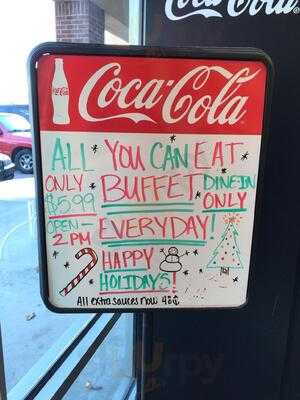 Coca-Cola
Coca-Cola
ALL YOU CAN EAT
ONLY $5.99 BUFFET DINE IN ONLY
OPEN - 2 PM EVERYDAY!
HAPPY
HOLIDAYS!
All extra sauces now 40¢